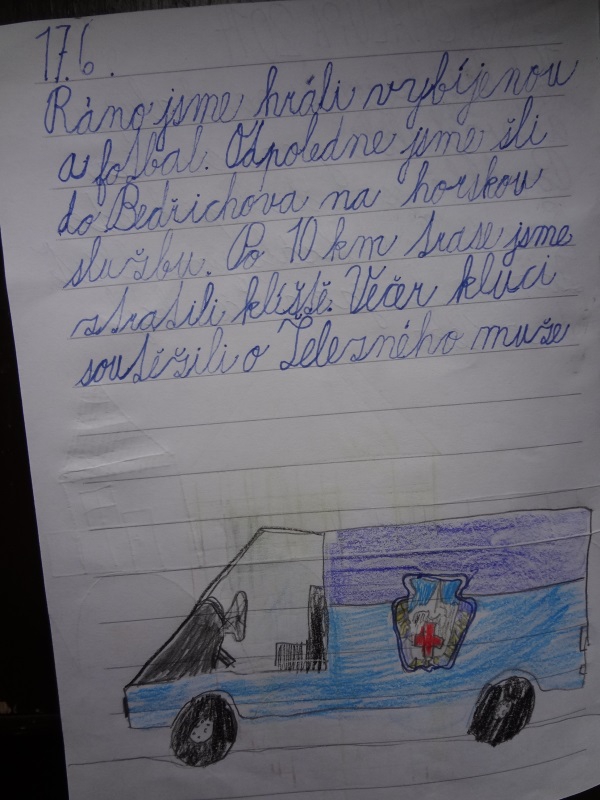 17.6.
Ráno jsme hráli vybíjenou
a fotbal. Odpoledne jsme šli
do Bedřichova na horskou
službu. Po 10 km trase jsme
ztratili klíště. Večer kluci
soutěžili o Železného muže